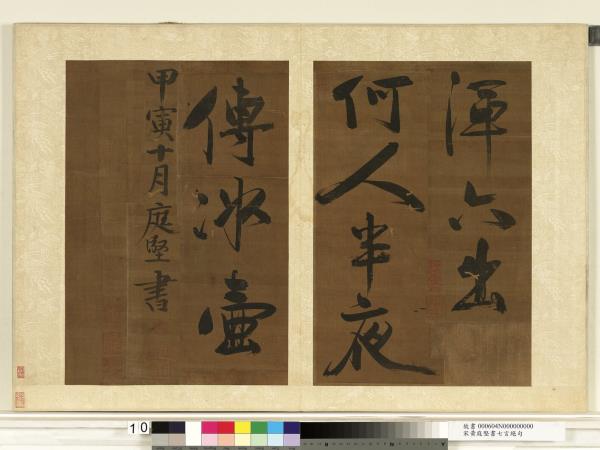 渾六出
何人半夜
傳冰壺
甲寅十月庭堅書
10
故書 000604N000000000
宋黃庭堅書七言絕句